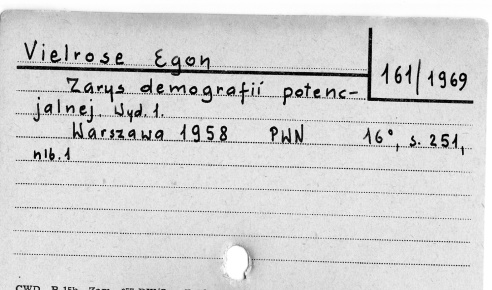 Vielrose Egon
161/1969
Zarys demografii potenc-
jalnej. Wyd. 1.
Warszawa 1958 PWN 16°, s. 251,
nlb. 1